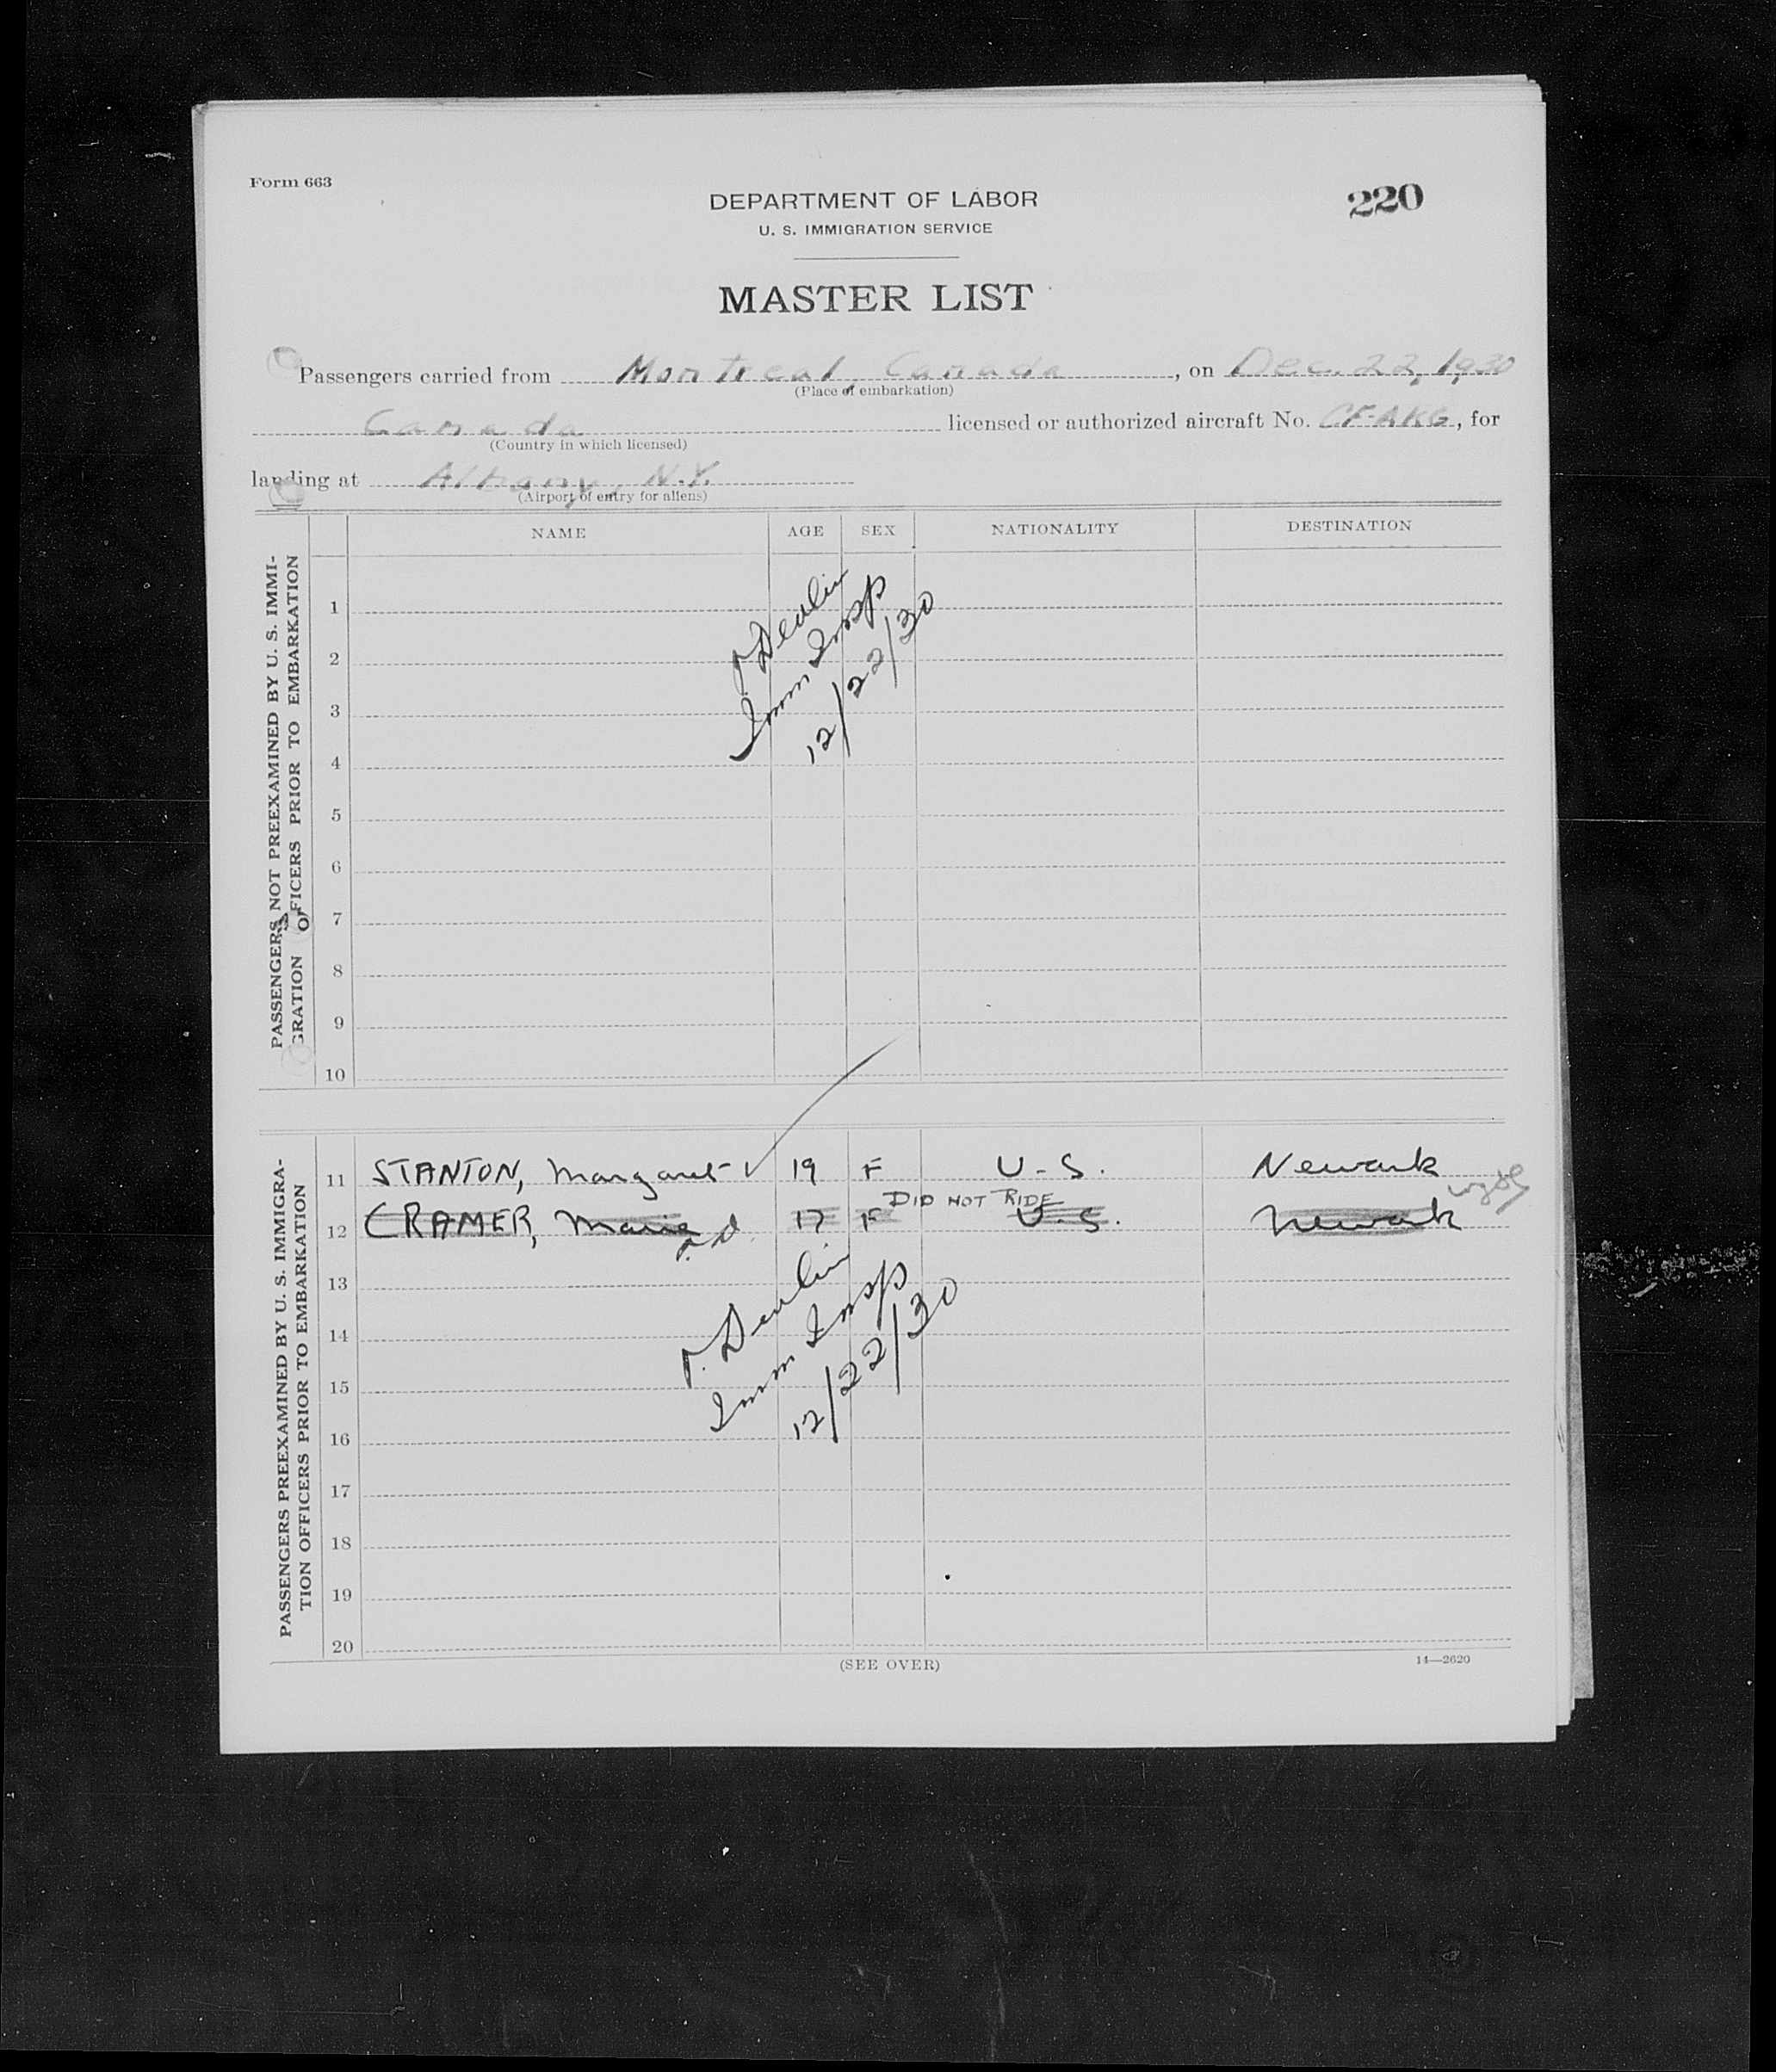 Form 663
DEPARTMENT OF LABOR
220
U. S. IMMIGRATION SERVICE
MASTER LIST
Passengers carried from Montreal, Canada, on Dec. 22, 1930
(Place of embarkation)
Canada licensed or authorized aircraft No. CF-AKG, for
(Country in which licensed)
landing at Albany, N.Y.
(Airport of entry for aliens)
NAME AGE SEX NATIONALITY DESTINATION
PASSENGERS NOT PREEXAMINED BY U. S. IMMI-
GRATION OFFICERS PRIOR TO EMBARKATION
1
2
3
4
5
6
7
8
9
10
Devlin
Imm Insp
12/22/30
PASSENGERS PREEXAMINED BY U. S. IMMIGRA-
TION OFFICERS PRIOR TO EMBARKATION
11 STANTON, Margaret 19 F U.S. Newark
DID NOT RIDE
12 CRAMER, Marie 17 F U.S. Newark
13
14
15
16
17
18
19
20
Devlin
Imm Insp
12/22/30
(SEE OVER)
14—2620